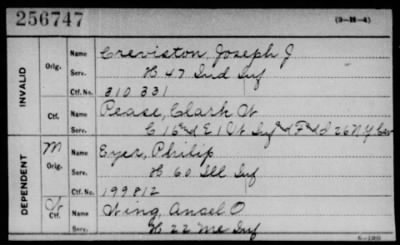 256747 (3-H-4)
INVALID
Orig. Name Creviston, Joseph J
Serv. H 47 Ind Inf
Ctf. No. 810 331
Ctf. Name Pease, Clark W
Serv. C 16 & E 1 Vt Inf & F & D 26 N.Y. Cav
DEPENDENT
M Orig. Name Eyer, Philip
Serv. H 60 Ill Inf
Ctf. No. 199812
W Ctf. Name Wing, Ansel O
Serv. H 22 Me Inf